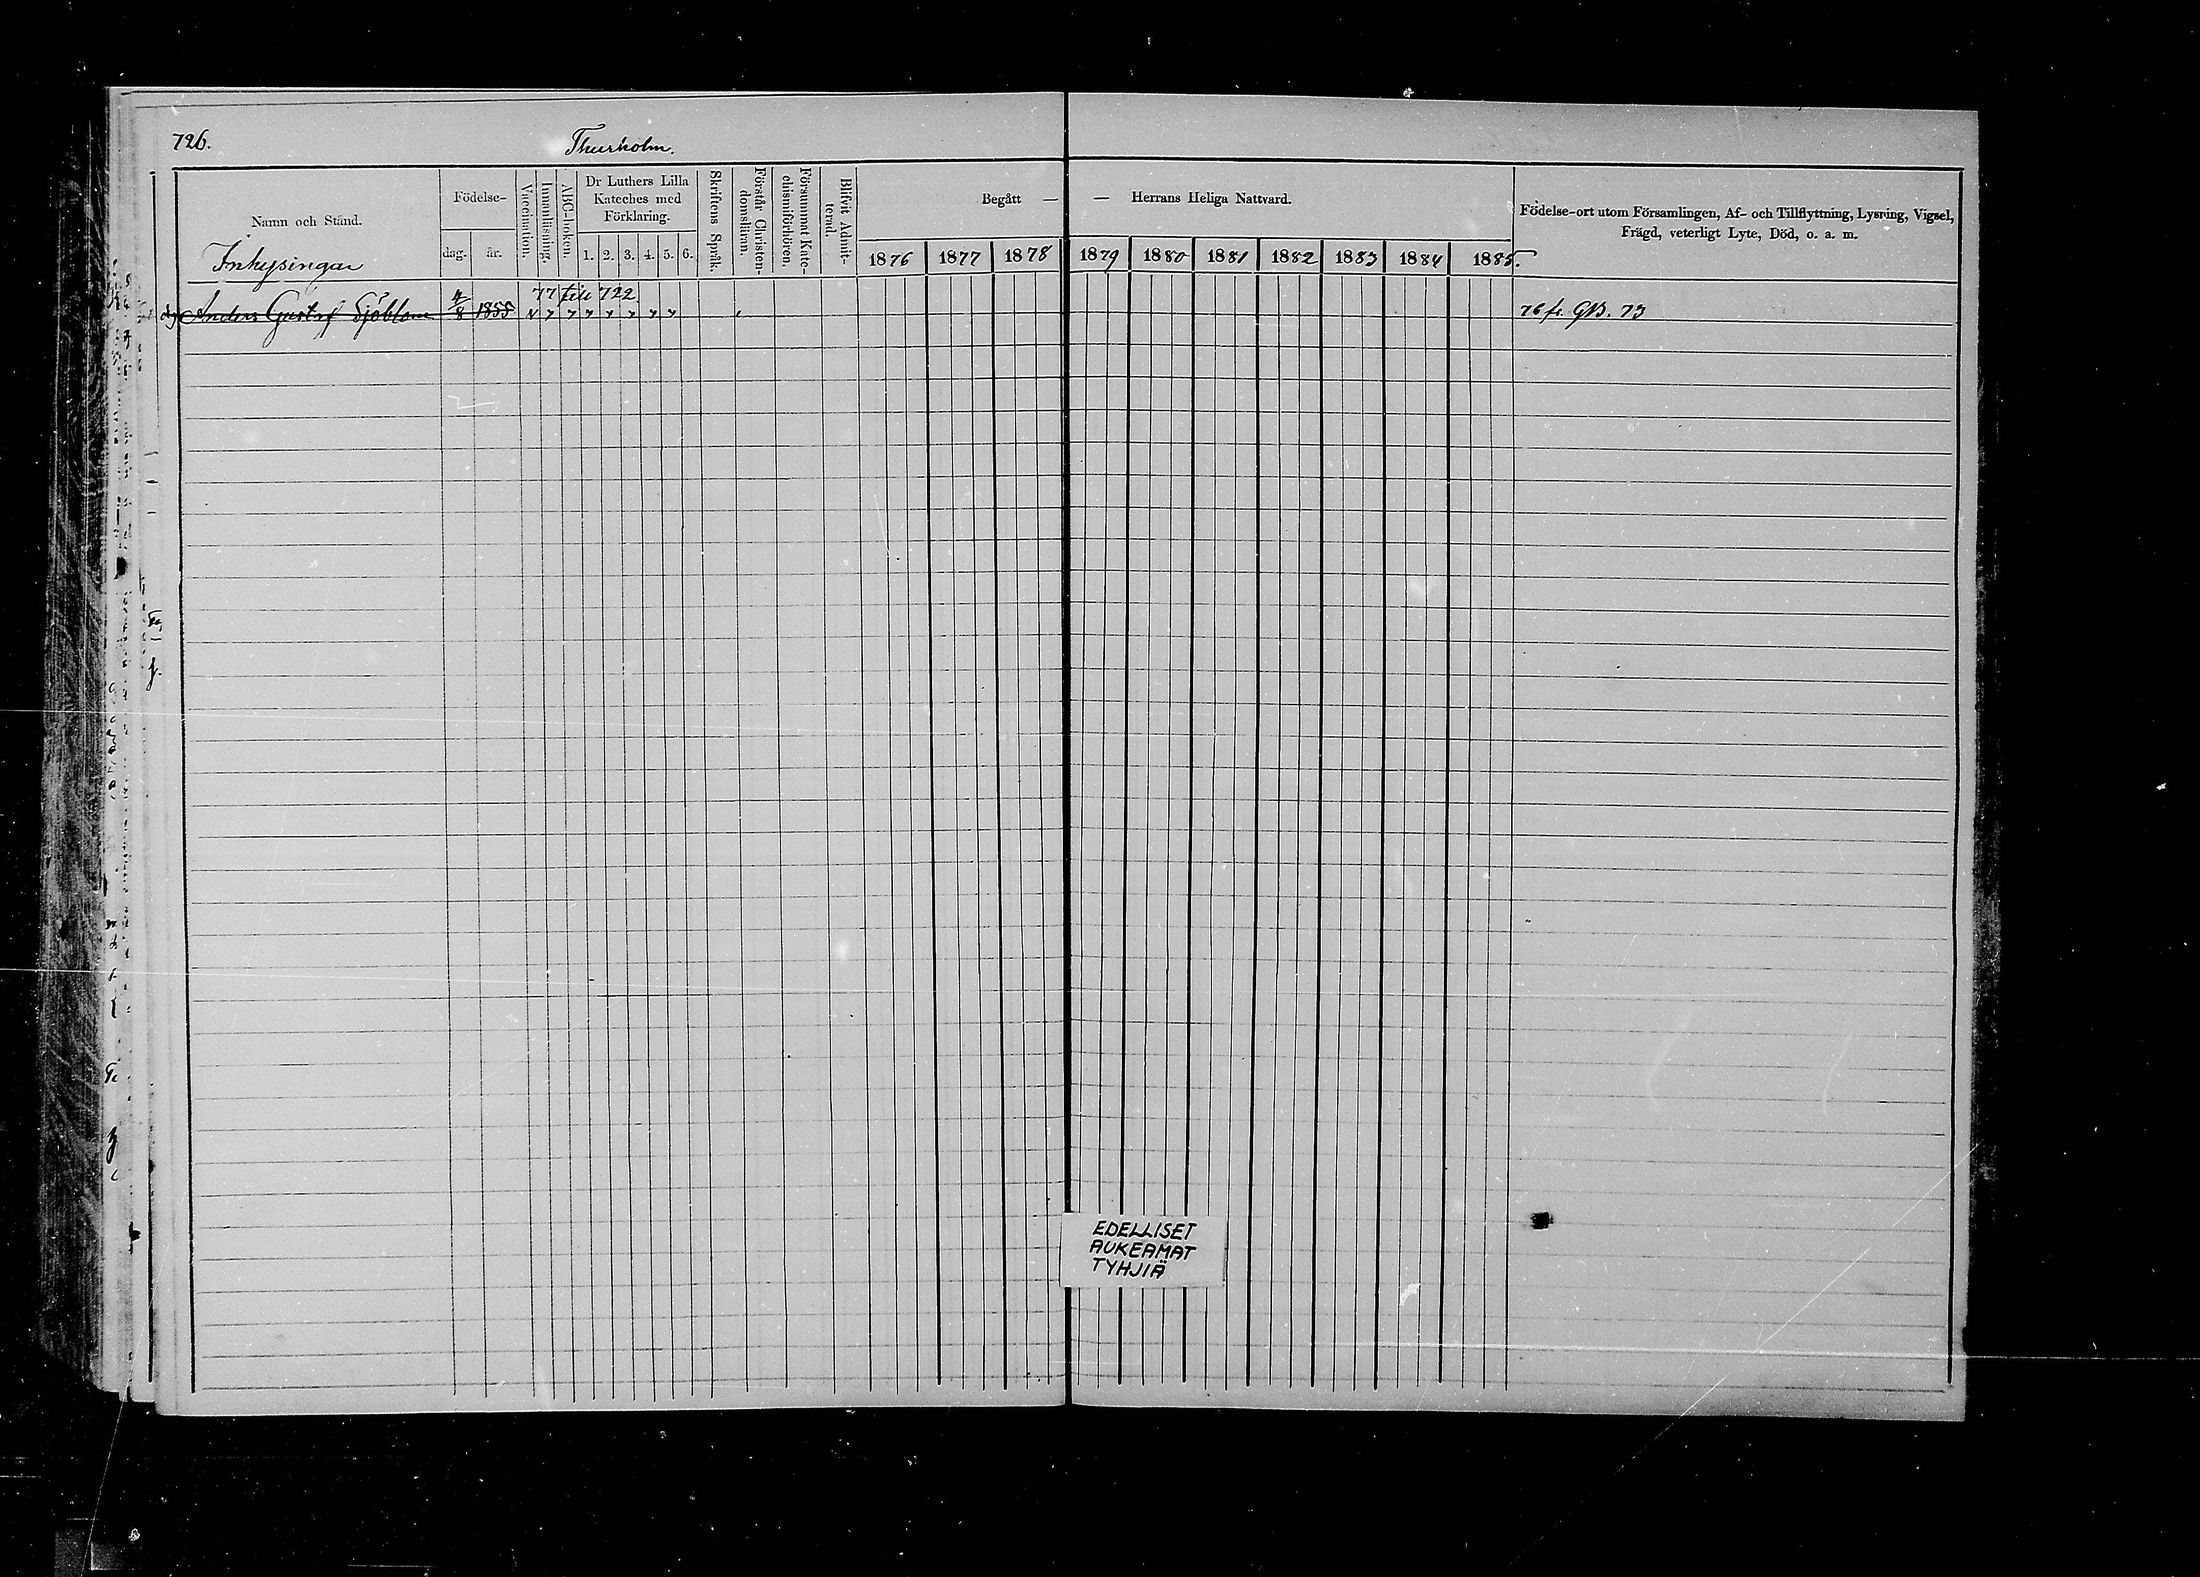 726.
Thurholm.
Namn och Stånd.
Inhysingar
Födelse-
dag. år.
Vaccination.
Innanläsning.
ABC-boken.
Dr Luthers Lilla
Kateches med
Förklaring.
1. 2. 3. 4. 5. 6.
Skriftens Språk.
Förstår Christen-
domsläran.
Försummat Kate-
chismiförhören.
Blifvit Admit-
terad.
Begått — — Herrans Heliga Nattvard.
1876 1877 1878 1879 1880 1881 1882 1883 1884 1885.
Födelse-ort utom Församlingen, Af- och Tillflyttning, Lysning, Vigsel,
Frägd, veterligt Lyte, Död, o. a. m.
77 till 722
Anders Gustaf Sjöblom 4/8 1855 76 fr. GB. 73
EDELLISET
AUKEAMAT
TYHJIÄ